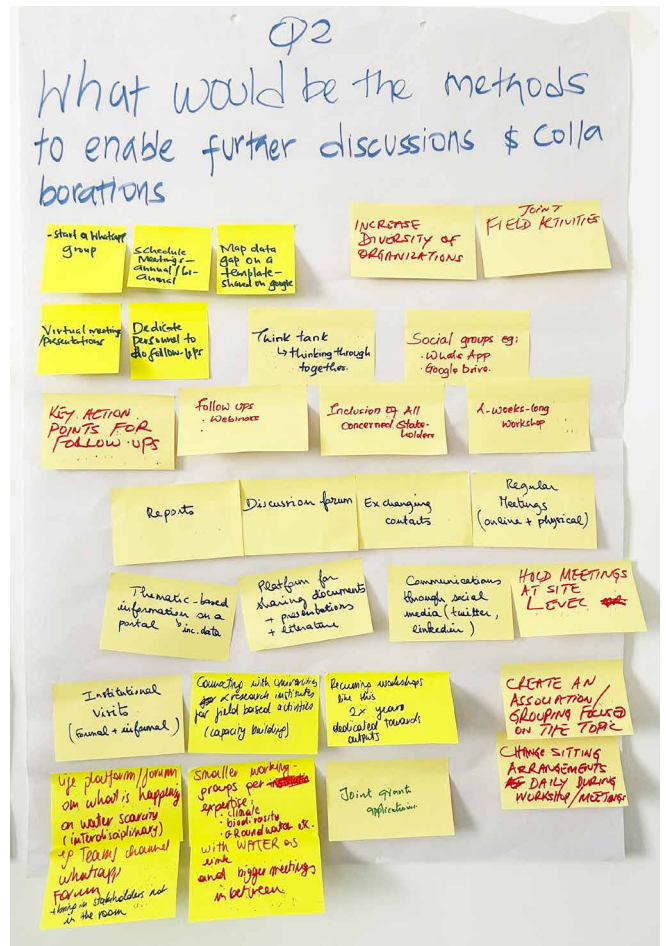 Q2
What would be the methods
to enable further discussions & Colla
borations
-start a Whatsapp
group
Schedule
Meetings-
annual/bi-
annual
Map data
gap on a
template-
shared on google
INCREASE
DIVERSITY OF
ORGANIZATIONS
JOINT
FIELD ACTIVITIES
Virtual meetings
/Presentations
Dedicate
personnel to
do follow-ups
Think tank
↳ thinking through
together.
Social groups eg:
• Whats App
• Google Drive.
KEY ACTION
POINTS FOR
FOLLOW-UPS
Follow ups
• Webinars
Inclusion of All
Concerned Stake-
holders
2-weeks-long
Workshop
Reports
Discussion forum
Exchanging
contacts
Regular
Meetings
(online + physical)
Thematic-based
information on a
portal
inc. data
Platform for
sharing documents
+ presentations
+ literature
Communications
through social
media (twitter,
linkedin)
HOLD MEETINGS
AT SITE
LEVEL
Institutional
visits
(Formal + informal)
Connecting with Universities
& research institutes
for field based activities
(capacity building)
Recurring workshops
like this
2x years
dedicated towards
outputs
CREATE AN
ASSOCIATION/
GROUPING FOCUSED
ON THE TOPIC
life platform/forum
on what is happening
on water scarcity
(interdisiplinary)
eg Teams channel
whatsapp
Forum
+ bring in stakeholders not
in the room
Smaller working-
groups per
expertise:
• climate
• biodivrosity
• Groundwater etc.
with WATER as
link
and bigger meetings
in between
Joint grants
applications
CHANGE SITTING
ARRANGEMENTS
DAILY DURING
WORKSHOP/MEETINGS